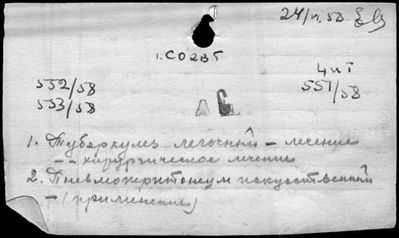 24/VI.53
1. СО2ВГ
552/58
553/58
Ц и Т
551/58
1. Туберкулез легочный – лечение
– – хирургическое лечение
2. Пневмоперитонеум искусственный
– (применение)